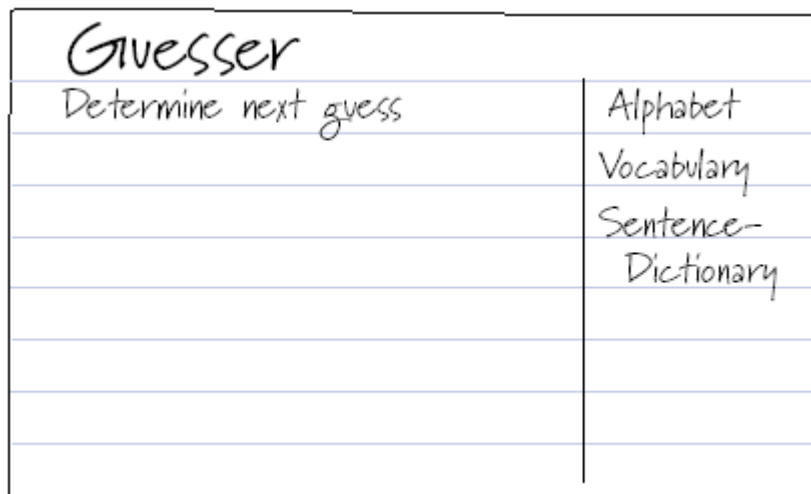 Guesser
Determine next guess
Alphabet
Vocabulary
Sentence-
Dictionary